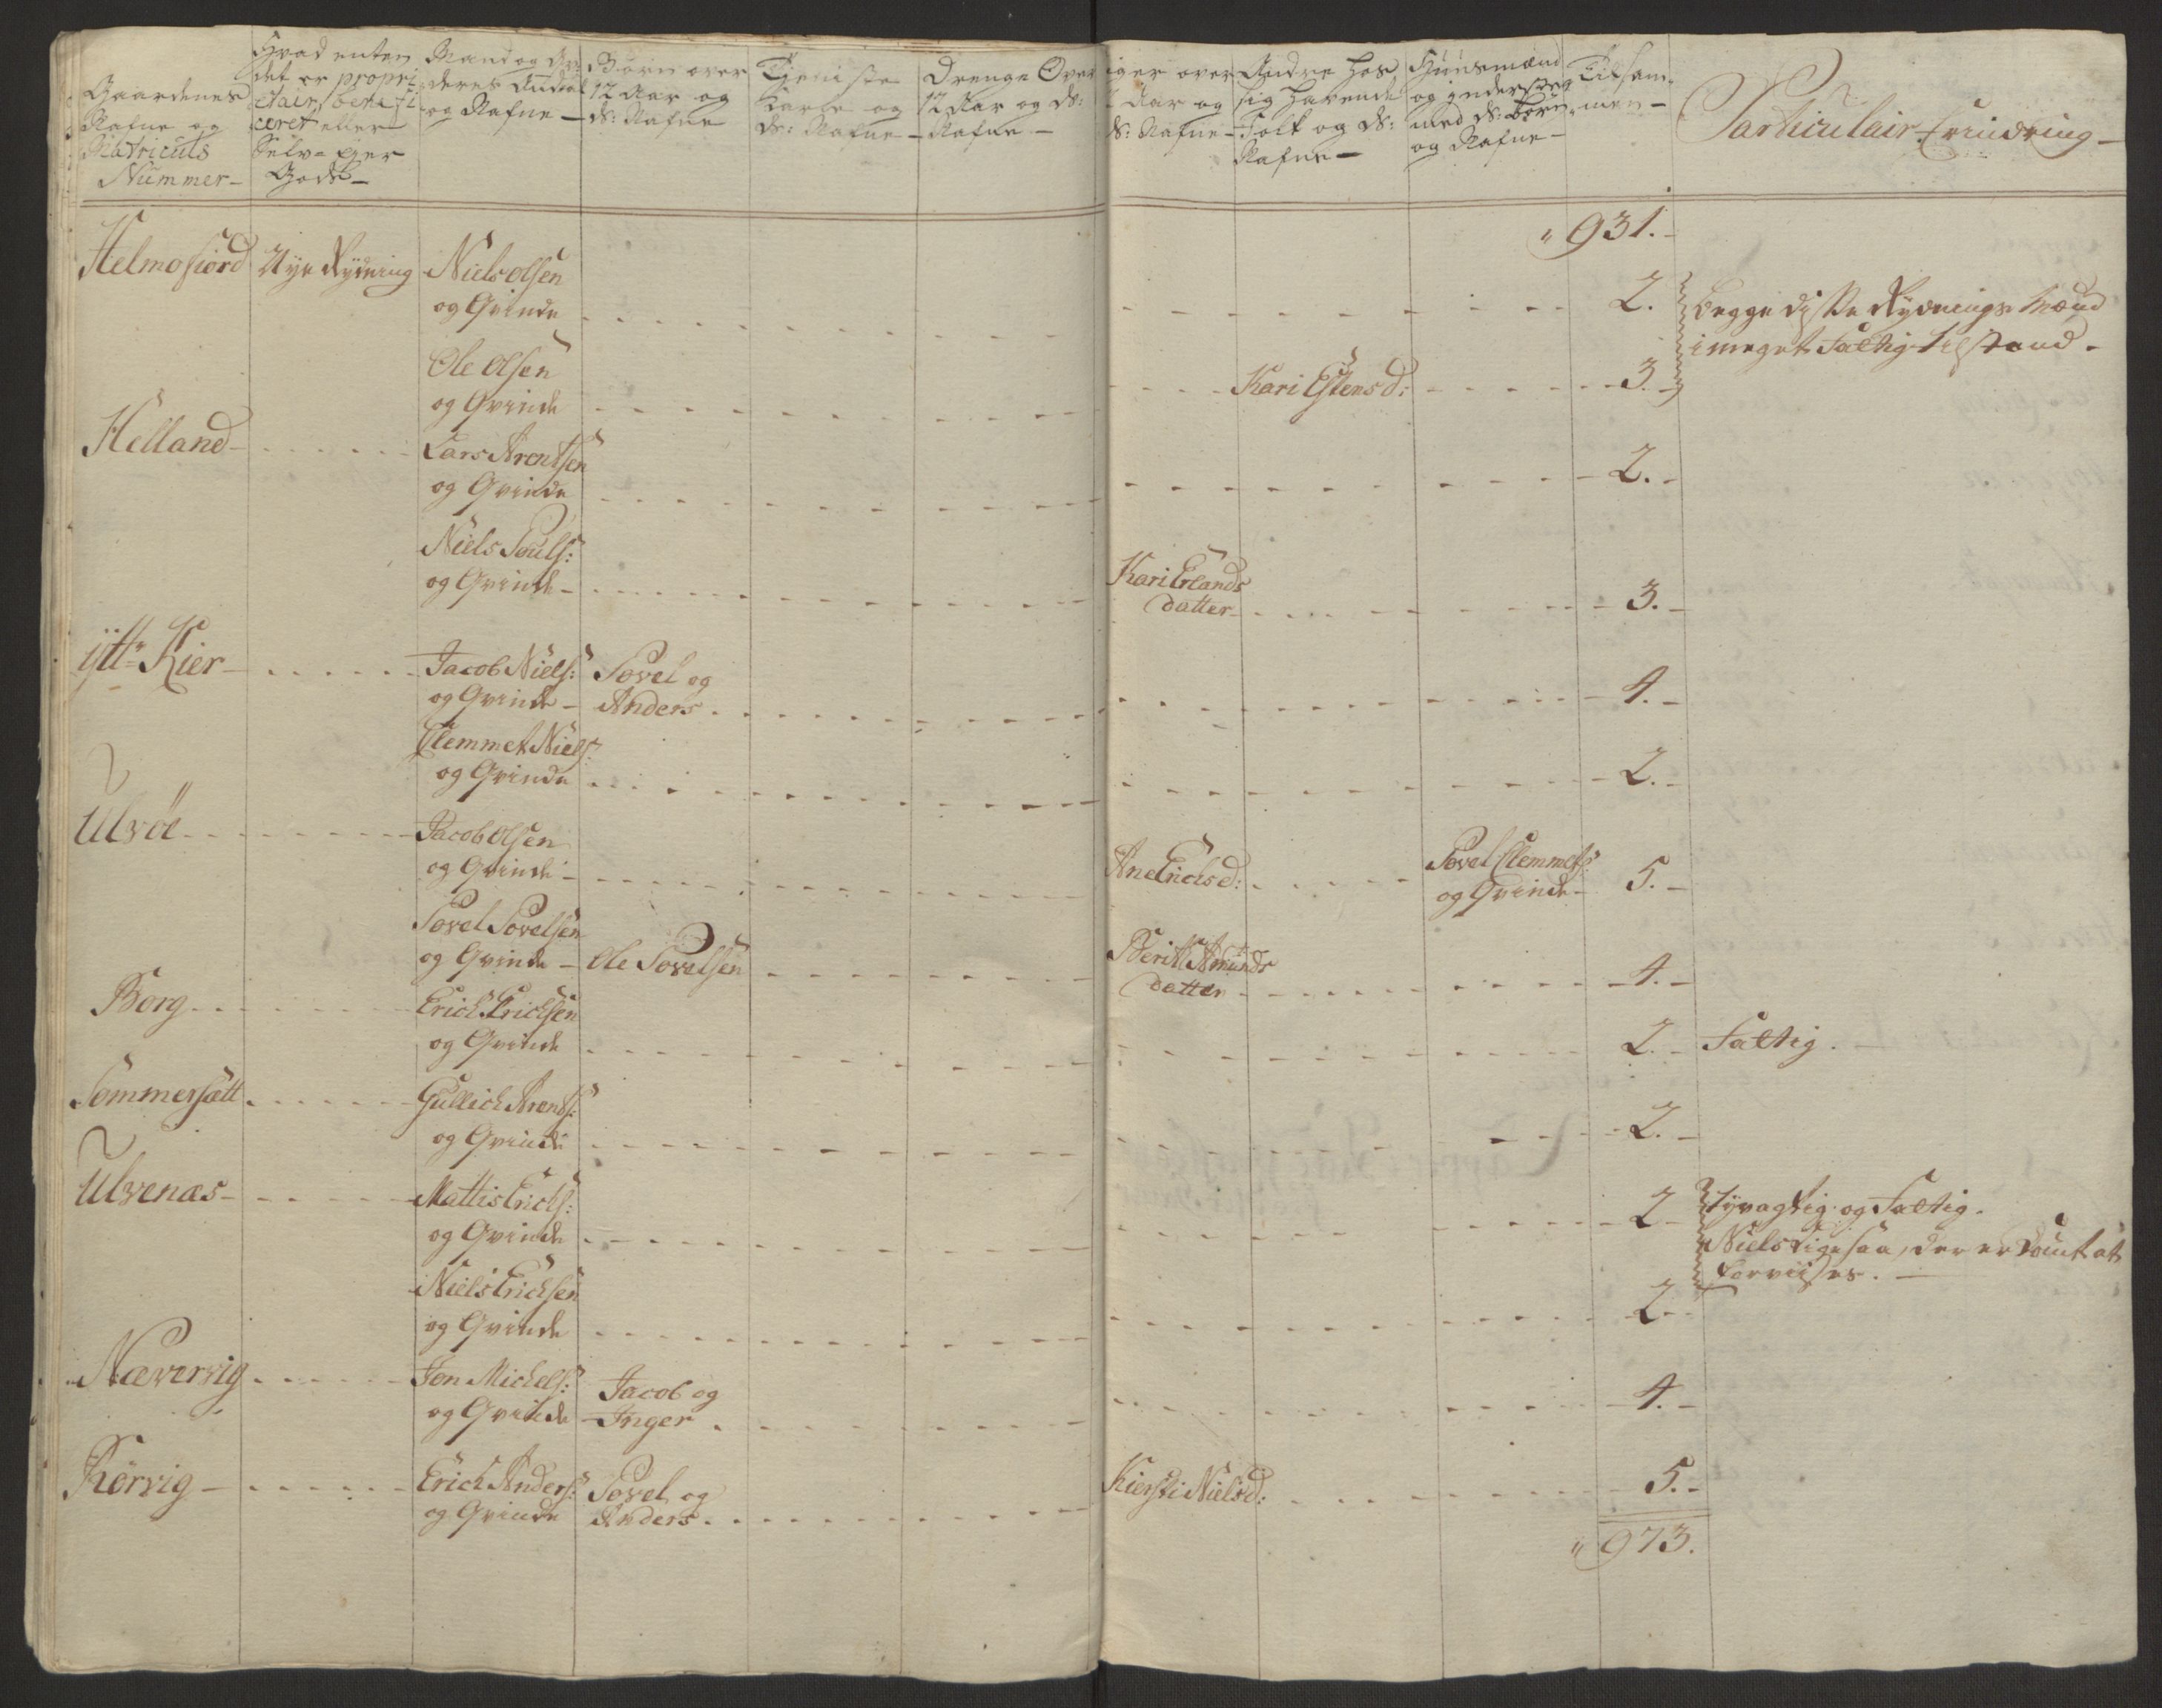 Gaardenes Nafne og Matriculs Nummer -
Hvad enten det er proprietair, beneficeret eller Selv-ejer Gods -
Mand og Qvinderes Andtal og Nafne -
Børn over 12 Aar og ds: Nafne
Tjeniste Karle og ds: Nafne -
Drenge Over 12 Aar og ds: Nafne -
iger over 12 Aar og ds: Nafne -
Andre hos sig havende Folk og ds: Nafne -
Huusmænd og inderster med ds: børn og Nafne -
Tilsammen -
Particulair Erindring -
" 931. -
Helmofiord Nye Rydning Niels Olsen
og Qvinde - 2. begge disse Rydnings Mænd
i meget Fattig tilstand. -
Ole Olsen
og Qvinde - Kari Estens d: - 3. -
Helland - Lars Arentsen
og Qvinde - 2. -
Niels Pouls:
og Qvinde - Kari Erlands
datter - 3. -
ÿtt: Kier - Jacob Niels: Povel og
og Qvinde - Anders - 4. -
Clemmet Niels:
og Qvinde - 2. -
Ulvöe - Jacob Olsen
og Qvinde - Ane Erichs d: - Povel Clemmets:
og Qvinde - 5. -
Povel Povelsen
og Qvinde - Ole Povelsen - Berit Amunds
datter - 4. -
Borg - Erich Erichsen
og Qvinde - 2. - Fattig. -
Sommersætt - Gullich Arents:
og Qvinde - 2. -
Ulvenæs - Mattis Erichs:
og Qvinde - 2 - Tyvagtig og Fattig.
Niels ligesaa, der er Dømt at
forviises. -
Niels Erichsen
og Qvinde - 2 -
Næververvig - Jon Michels: Jacob og
og Qvinde Inger - 4. -
Körvig - Erich Anders: Povel og
og Qvinde Anders - Kiersti Niels d: - 5. -
" 973.